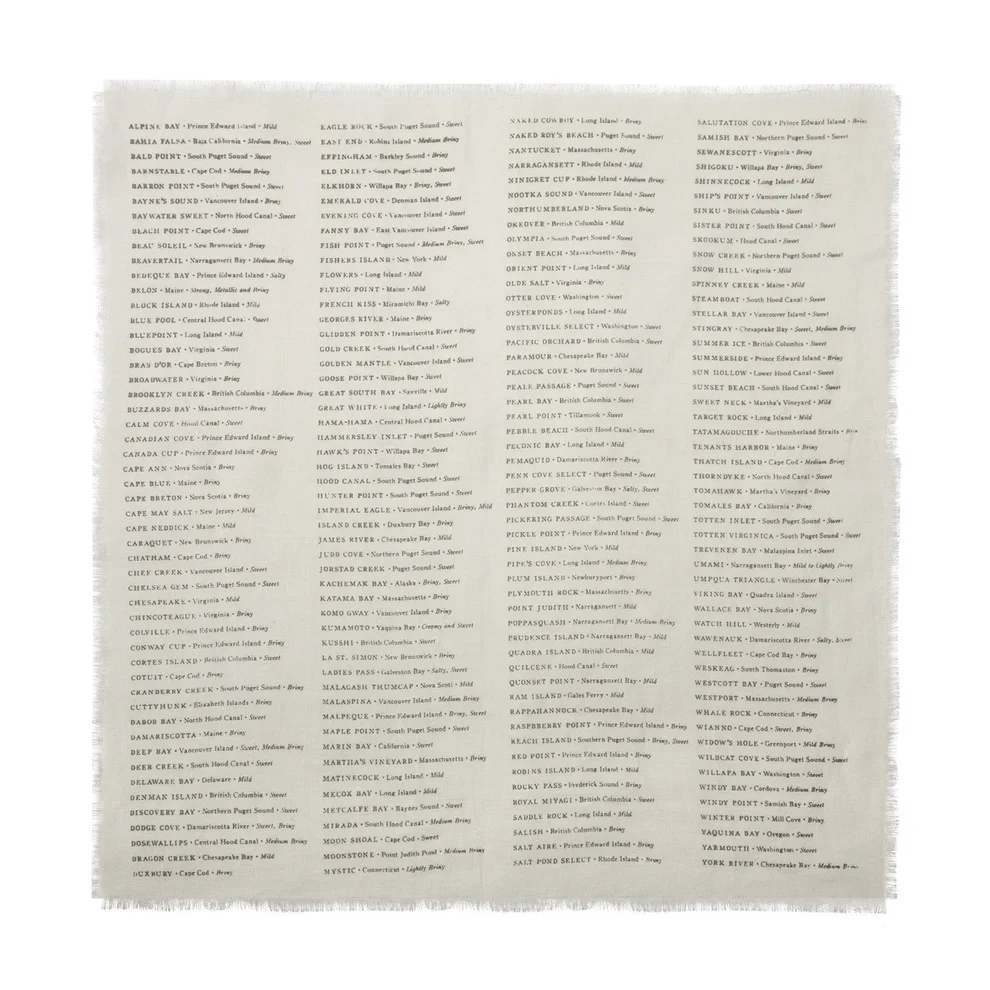 ALPINE BAY • Prince Edward Island • Mild
BAHIA FALSA • Baja California • Medium Briny, Sweet
BALD POINT • South Puget Sound • Sweet
BARNSTABLE • Cape Cod • Medium Briny
BARRON POINT • South Puget Sound • Sweet
BAYNE'S SOUND • Vancouver Island • Briny
BAYWATER SWEET • North Hood Canal • Sweet
BEACH POINT • Cape Cod • Briny
BEAU SOLEIL • New Brunswick • Briny
BEAVERTAIL • Narragansett Bay • Medium Briny
BEDEQUE BAY • Prince Edward Island • Salty
BELON • Maine • Strong, Metallic and Briny
BLOCK ISLAND • Rhode Island • Mild
BLUE POOL • Central Hood Canal • Sweet
BLUEPOINT • Long Island • Mild
BOGUES BAY • Virginia • Sweet
BRAS D'OR • Cape Breton • Briny
BROADWATER • Virginia • Briny
BROOKLYN CREEK • British Columbia • Medium Briny
BUZZARDS BAY • Massachusetts • Briny
CALM COVE • Hood Canal • Sweet
CANADIAN COVE • Prince Edward Island • Briny
CANADA CUP • Prince Edward Island • Briny
CAPE ANN • Nova Scotia • Briny
CAPE BLUE • Maine • Briny
CAPE BRETON • Nova Scotia • Briny
CAPE MAY SALT • New Jersey • Mild
CAPE NEDDICK • Maine • Mild
CARAQUET • New Brunswick • Briny
CHATHAM • Cape Cod • Briny
CHEF CREEK • Vancouver Island • Sweet
CHELSEA GEM • South Puget Sound • Sweet
CHESAPEAKE • Virginia • Mild
CHINCOTEAGUE • Virginia • Briny
COLVILLE • Prince Edward Island • Briny
CONWAY CUP • Prince Edward Island • Briny
CORTES ISLAND • British Columbia • Sweet
COTUIT • Cape Cod • Briny
CRANBERRY CREEK • South Puget Sound • Briny
CUTTYHUNK • Elizabeth Islands • Briny
DABOB BAY • North Hood Canal • Sweet
DAMARISCOTTA • Maine • Briny
DEEP BAY • Vancouver Island • Sweet, Medium Briny
DEER CREEK • South Hood Canal • Sweet
DELAWARE BAY • Delaware • Mild
DENMAN ISLAND • British Columbia • Sweet
DISCOVERY BAY • Northern Puget Sound • Sweet
DODGE COVE • Damariscotta River • Sweet, Briny
DOSEWALLIPS • Central Hood Canal • Medium Briny
DRAGON CREEK • Chesapeake Bay • Mild
DUXBURY • Cape Cod • Briny
EAGLE ROCK • South Puget Sound • Sweet
EAST END • Robins Island • Medium Briny
EFFINGHAM • Barkley Sound • Briny
ELD INLET • South Puget Sound • Sweet
ELKHORN • Willapa Bay • Briny, Sweet
EMERALD COVE • Denman Island • Sweet
EVENING COVE • Vancouver Island • Sweet
FANNY BAY • East Vancouver Island • Sweet
FISH POINT • Puget Sound • Medium Briny, Sweet
FISHERS ISLAND • New York • Mild
FLOWERS • Long Island • Mild
FLYING POINT • Maine • Mild
FRENCH KISS • Miramichi Bay • Salty
GEORGES RIVER • Maine • Briny
GLIDDEN POINT • Damariscotta River • Briny
GOLD CREEK • South Hood Canal • Sweet
GOLDEN MANTLE • Vancouver Island • Sweet
GOOSE POINT • Willapa Bay • Sweet
GREAT SOUTH BAY • Sayville • Mild
GREAT WHITE • Long Island • Lightly Briny
HAMA-HAMA • Central Hood Canal • Sweet
HAMMERSLEY INLET • Puget Sound • Sweet
HAWK'S POINT • Willapa Bay • Sweet
HOG ISLAND • Tomales Bay • Sweet
HOOD CANAL • South Puget Sound • Sweet
HUNTER POINT • South Puget Sound • Sweet
IMPERIAL EAGLE • Vancouver Island • Briny, Mild
ISLAND CREEK • Duxbury Bay • Briny
JAMES RIVER • Chesapeake Bay • Mild
JUDD COVE • Northern Puget Sound • Sweet
JORSTAD CREEK • Puget Sound • Sweet
KACHEMAK BAY • Alaska • Briny, Sweet
KATAMA BAY • Massachusetts • Briny
KOMO GWAY • Vancouver Island • Briny
KUMAMOTO • Yaquina Bay • Creamy and Sweet
KUSSHI • British Columbia • Sweet
LA ST. SIMON • New Brunswick • Briny
LADIES PASS • Galveston Bay • Salty, Sweet
MALAGASH THUMCAP • Nova Scoti • Mild
MALASPINA • Vancouver Island • Medium Briny
MALPEQUE • Prince Edward Island • Briny, Sweet
MAPLE POINT • South Puget Sound • Sweet
MARIN BAY • California • Sweet
MARTHA'S VINEYARD • Massachusetts • Briny
MATINECOCK • Long Island • Mild
MECOX BAY • Long Island • Mild
METCALFE BAY • Baynes Sound • Sweet
MIRADA • South Hood Canal • Medium Briny
MOON SHOAL • Cape Cod • Sweet
MOONSTONE • Point Judith Pond • Medium Briny
MYSTIC • Connecticut • Lightly Briny
NAKED COWBOY • Long Island • Briny
NAKED ROY'S BEACH • Puget Sound • Sweet
NANTUCKET • Massachusetts • Briny
NARRAGANSETT • Rhode Island • Mild
NINIGRET CUP • Rhode Island • Medium Briny
NOOTKA SOUND • Vancouver Island • Sweet
NORTHUMBERLAND • Nova Scotia • Briny
OKEOVER • British Columbia • Mild
OLYMPIA • South Puget Sound • Sweet
ONSET BEACH • Massachusetts • Briny
ORIENT POINT • Long Island • Mild
OLDE SALT • Virginia • Briny
OTTER COVE • Washington • Sweet
OYSTERPONDS • Long Island • Mild
OYSTERVILLE SELECT • Washington • Sweet
PACIFIC ORCHARD • British Columbia • Sweet
PARAMOUR • Chesapeake Bay • Mild
PEACOCK COVE • New Brunswick • Mild
PEALE PASSAGE • Puget Sound • Sweet
PEARL BAY • British Columbia • Sweet
PEARL POINT • Tillamook • Sweet
PEBBLE BEACH • South Hood Canal • Sweet
PECONIC BAY • Long Island • Mild
PEMAQUID • Damariscotta River • Briny
PENN COVE SELECT • Puget Sound • Sweet
PEPPER GROVE • Galveston Bay • Salty, Sweet
PHANTOM CREEK • Cortes Island • Sweet
PICKERING PASSAGE • South Puget Sound • Sweet
PICKLE POINT • Prince Edward Island • Briny
PINE ISLAND • New York • Mild
PIPE'S COVE • Long Island • Medium Briny
PLUM ISLAND • Newburyport • Briny
PLYMOUTH ROCK • Massachusetts • Briny
POINT JUDITH • Narragansett • Mild
POPPASQUASH • Narragansett Bay • Medium Briny
PRUDENCE ISLAND • Narragansett Bay • Mild
QUADRA ISLAND • British Columbia • Mild
QUILCENE • Hood Canal • Sweet
QUONSET POINT • Narragansett Bay • Mild
RAM ISLAND • Gales Ferry • Mild
RAPPAHANNOCK • Chesapeake Bay • Mild
RASPBBERRY POINT • Prince Edward Island • Briny
REACH ISLAND • Southern Puget Sound • Briny, Sweet
RED POINT • Prince Edward Island • Briny
ROBINS ISLAND • Long Island • Mild
ROCKY PASS • Frederick Sound • Briny
ROYAL MIYAGI • British Columbia • Sweet
SADDLE ROCK • Long Island • Mild
SALISH • British Columbia • Briny
SALT AIRE • Prince Edward Island • Briny
SALT POND SELECT • Rhode Island • Briny
SALUTATION COVE • Prince Edward Island • Briny
SAMISH BAY • Northern Puget Sound • Sweet
SEWANESCOTT • Virginia • Briny
SHIGOKU • Willapa Bay • Briny, Sweet
SHINNECOCK • Long Island • Mild
SHIP'S POINT • Vancouver Island • Sweet
SINKU • British Columbia • Sweet
SISTER POINT • South Hood Canal • Sweet
SKOOKUM • Hood Canal • Sweet
SNOW CREEK • Northern Puget Sound • Sweet
SNOW HILL • Virginia • Mild
SPINNEY CREEK • Maine • Mild
STEAMBOAT • South Hood Canal • Sweet
STELLAR BAY • Vancouver Island • Sweet
STINGRAY • Chesapeake Bay • Sweet, Medium Briny
SUMMER ICE • British Columbia • Sweet
SUMMERSIDE • Prince Edward Island • Briny
SUN HOLLOW • Lower Hood Canal • Sweet
SUNSET BEACH • South Hood Canal • Sweet
SWEET NECK • Martha's Vineyard • Mild
TARGET ROCK • Long Island • Mild
TATAMAGOUCHE • Northumberland Straits • Briny
TENANTS HARBOR • Maine • Briny
THATCH ISLAND • Cape Cod • Medium Briny
THORNDYKE • North Hood Canal • Sweet
TOMAHAWK • Martha's Vineyard • Briny
TOMALES BAY • California • Briny
TOTTEN INLET • South Puget Sound • Sweet
TOTTEN VIRGINICA • South Puget Sound • Sweet
TREVENEN BAY • Malaspina Inlet • Sweet
UMAMI • Narragansett Bay • Mild to Lightly Briny
UMPQUA TRIANGLE • Winchester Bay • Sweet
VIKING BAY • Quadra Island • Sweet
WALLACE BAY • Nova Scotia • Briny
WATCH HILL • Westerly • Mild
WAWENAUK • Damariscotta River • Salty, Sweet
WELLFLEET • Cape Cod Bay • Briny
WESKEAG • South Thomaston • Briny
WESTCOTT BAY • Puget Sound • Sweet
WESTPORT • Massachusetts • Medium Briny
WHALE ROCK • Connecticut • Briny
WIANNO • Cape Cod • Sweet, Briny
WIDOW'S HOLE • Greenport • Mild Briny
WILDCAT COVE • South Puget Sound • Sweet
WILLAPA BAY • Washington • Sweet
WINDY BAY • Cordova • Medium Briny
WINDY POINT • Samish Bay • Sweet
WINTER POINT • Mill Cove • Briny
YAQUINA BAY • Oregon • Sweet
YARMOUTH • Washington • Sweet
YORK RIVER • Chesapeake Bay • Medium Briny